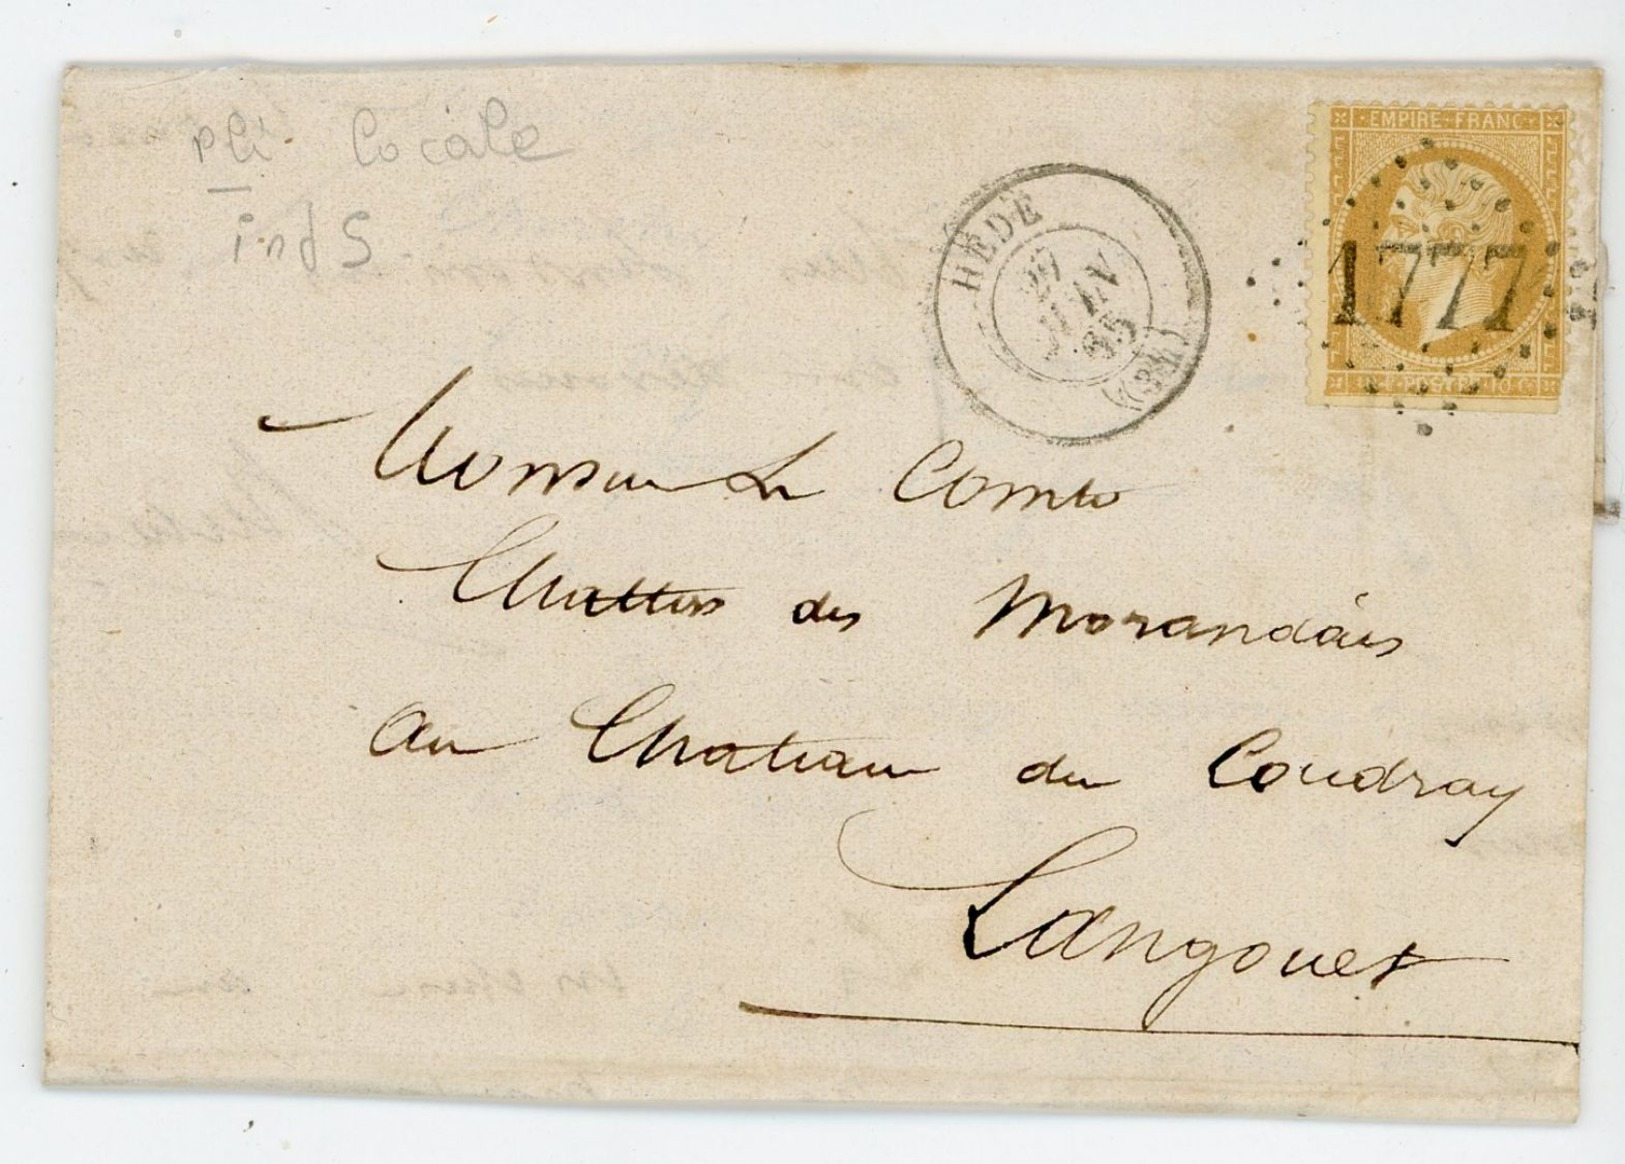 pli locale
ind 5
HÉDÉ
27
JUIN
65
(34)
EMPIRE FRANC
1777
POSTE 10 C
Monsieur Le Comte
des Morandais
au Chateau du Coudray
Langouet